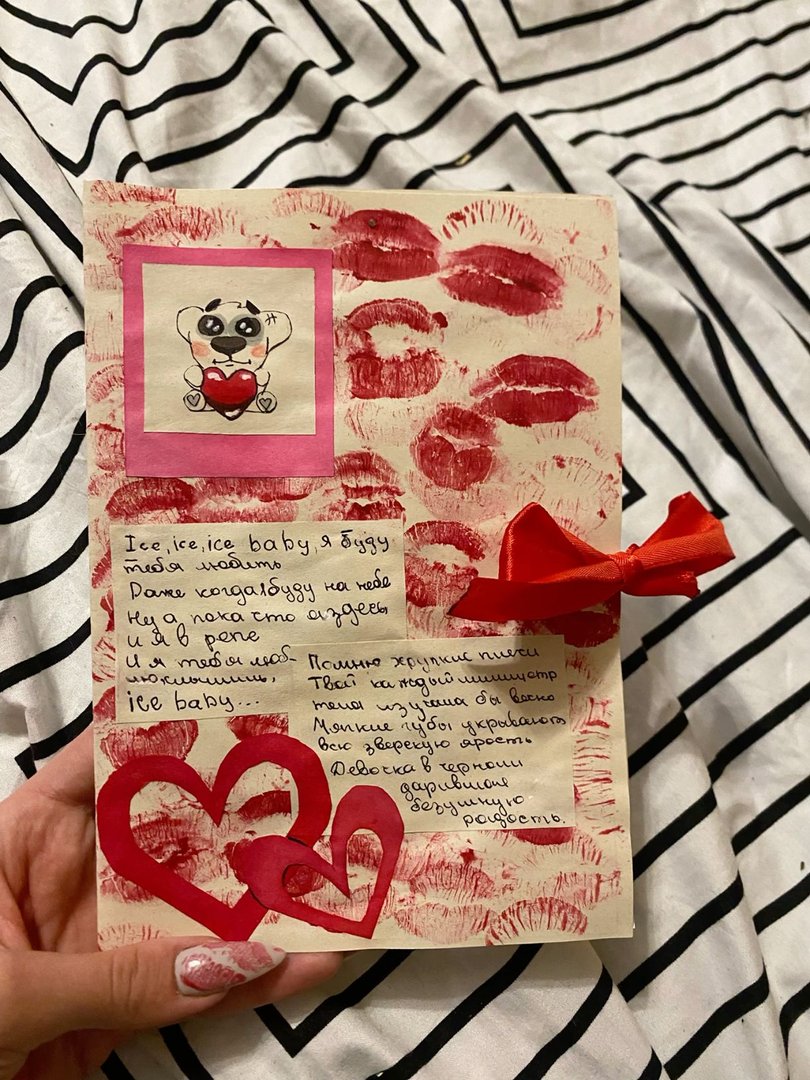 Ice, ice, ice baby, я буду
тебя любить
Даже когда буду на небе
Ну а пока что я здесь
и я в репе
И я тебя люб-
ice baby...
Помню хрупкие плечи
Твой каждый миллиметр
тела изучила бы вечно
Мягкие губы укрывают
всю зверскую ярость
Девочка в черном
дарившая
безумную
радость.